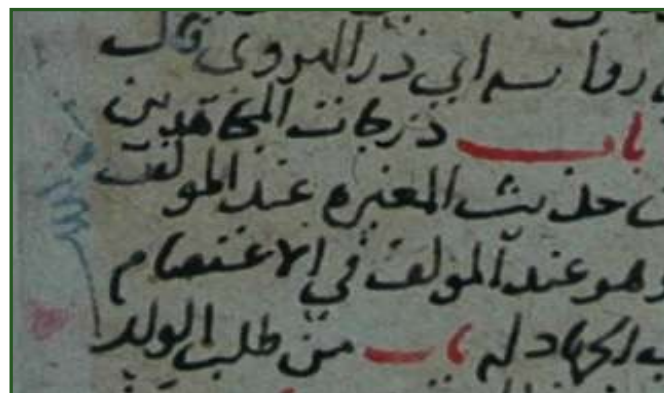 رواية ابي ذر الهروي قال
باب درجات المجاهدين
حديث المغيرة عند المولف
وهو عند المولف في الاعتصام
الجهاد له باب من طلب الولد